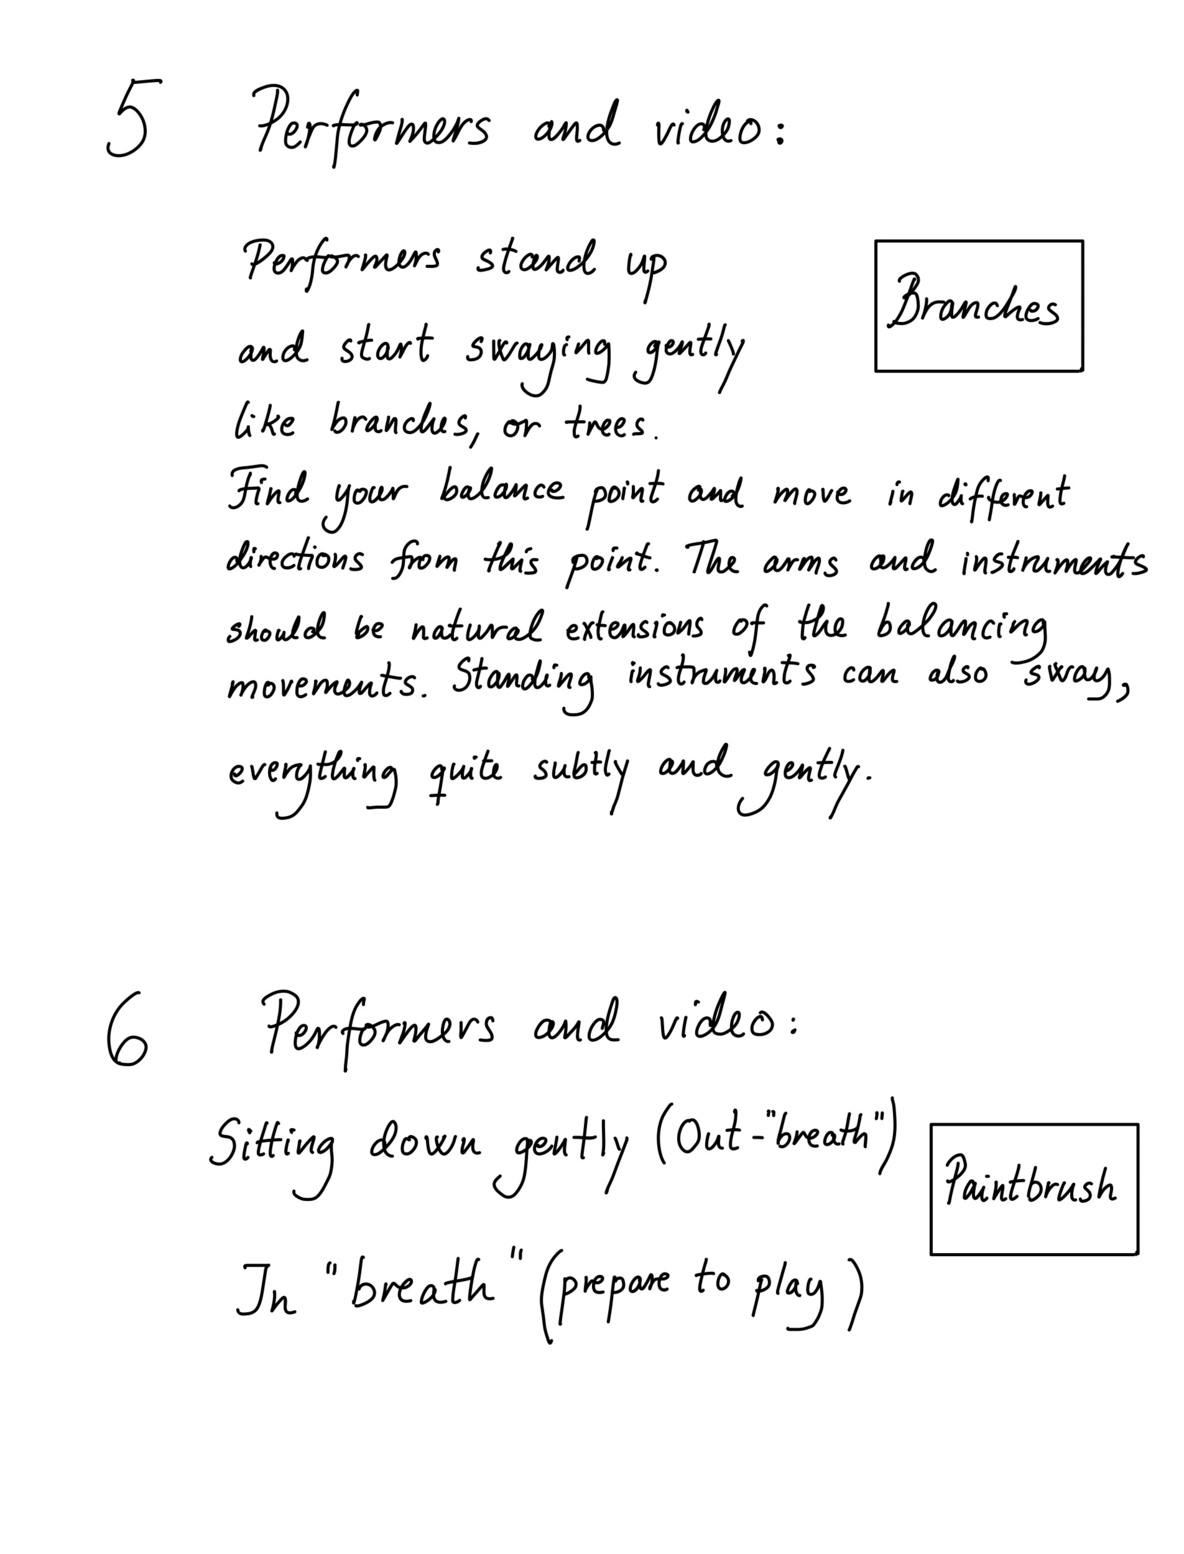 5 Performers and video:
Performers stand up
Branches
and start swaying gently
like branches, or trees.
Find your balance point and move in different
directions from this point. The arms and instruments
should be natural extensions of the balancing
movements. Standing instruments can also sway,
everything quite subtly and gently.
6 Performers and video:
Sitting down gently (Out-"breath")
Paintbrush
In "breath" (prepare to play)